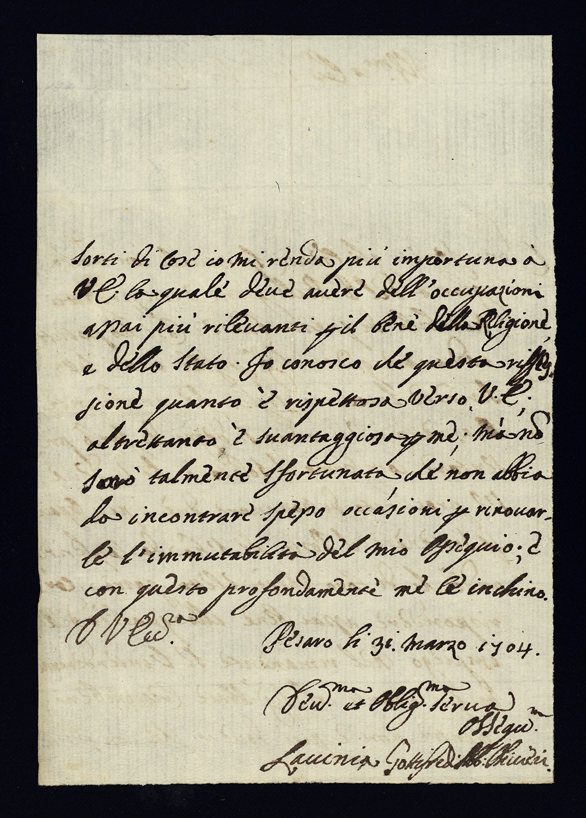 sorti di cose io mi renda più importuna à
V.E. la quale deve avere dell'occupazioni
assai più rilevanti p il bene della Religione,
e dello Stato. Io conosco che questa rifles-
sione quanto è rispettosa verso V.E.
altrettanto è svantaggiosa p me; mà nõ
sarò talmente sfortunata che non abbia
da incontrare spesso occasioni p rinovar-
le l'immutabilità del mio ossequio; e
con questo profondamente me le inchino.
D V. Ecc.za
Pesaro li 31. Marzo 1704.
Dev.ma et Oblig.ma serva
Ossequ.ma
Lavinia Gottifredi